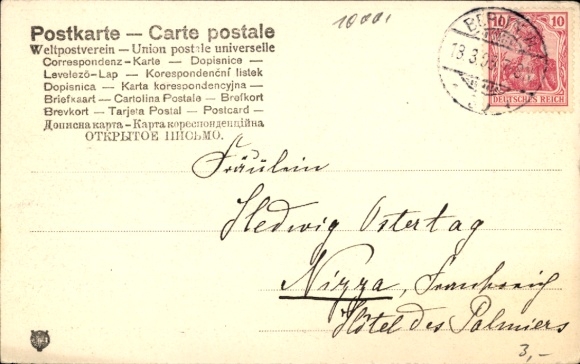 10001
Postkarte — Carte postale
Weltpostverein — Union postale universelle
Correspondenz-Karte — Dopisnice —
Levelező-Lap — Korespondenční listek
Dopisnica — Karta korespondencyjna —
Briefkaart — Cartolina Postale — Brefkort
Brevkort — Tarjeta Postal — Postcard —
Дописна карта - Карта кореспонденційна
ОТКРЫТОЕ ПИСЬМО.
10
DEUTSCHES REICH
Fräulein
Hedwig Ostertag
Nizza, Frankreich
Hôtel des Palmiers
3,-